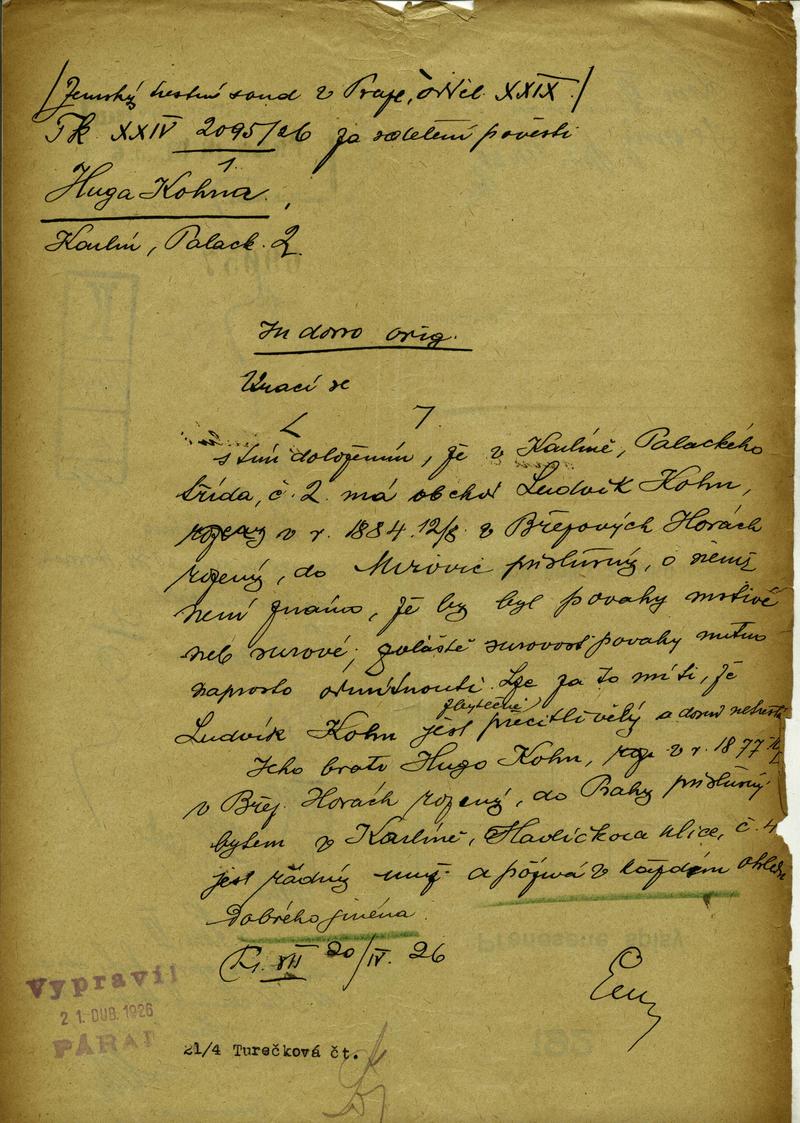 /Zemský trestní soud v Praze, odděl. XXIX/
Tk XXIV 2095/26 za sdělení pověsti
1
Huga Kohna,
Karlín, Palack. 2.
In dorso orig.
Vrací se
s tím doložením, že v Karlíně, Palackého
třída, č. 2. má obchod Ludvík Kohn,
v r. 1884 12/8 v Březových Horách
rozený, do Mirovic příslušný, o němž
není známo, že by byl povahy mstivé
neb surové; zvláště surovost povahy nutno
naprosto odmítnouti. Lze za to míti, že
zbytečně
Ludvík Kohn jest přecitlivělý a
Jeho bratr Hugo Kohn, v r. 1877
v Břez. Horách rozený, do Prahy příslušný
bytem v Karlíně, Havlíčkova ulice, č. 4
jest řádný muž a požívá v každém ohledu
dobrého jména.
VII 20/IV. 26
Vypravil
21. DUB. 1926
21/4 Turečková čt.